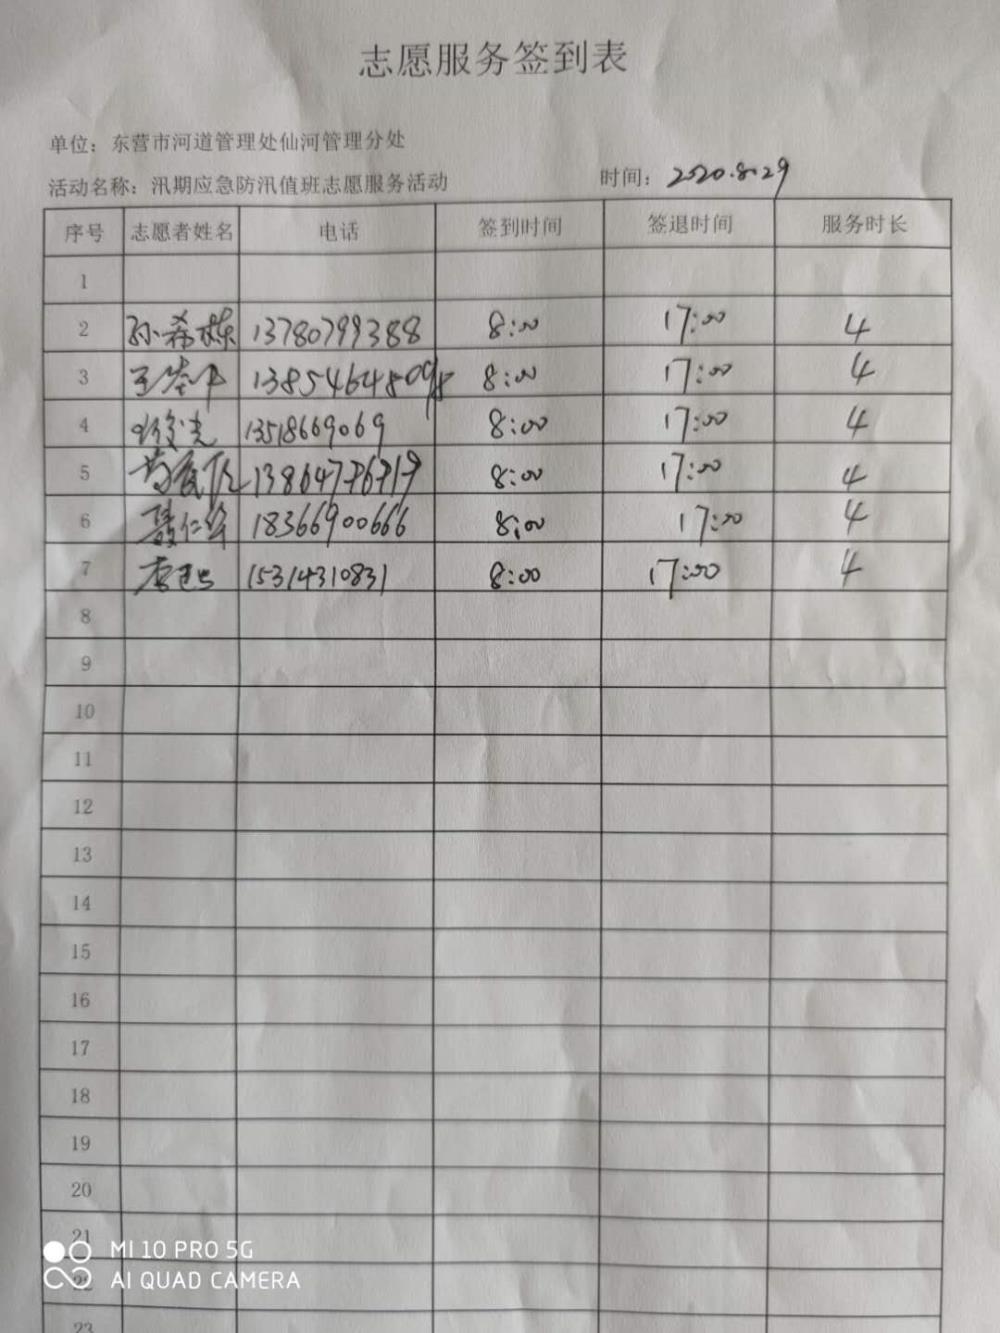 志愿服务签到表
单位：东营市河道管理处仙河管理分处
活动名称：汛期应急防汛值班志愿服务活动 时间：2020.8.29
序号 志愿者姓名 电话 签到时间 签退时间 服务时长
1
2 孙希栋 13780799388 8:00 17:00 4
3 8:00 17:00 4
4 13518669069 8:00 17:00 4
5 8:00 17:00 4
6 聂仁华 18366900666 8:00 17:00 4
7 15314310831 8:00 17:00 4
8
9
10
11
12
13
14
15
16
17
18
19
20
21
22
23
MI 10 PRO 5G
AI QUAD CAMERA